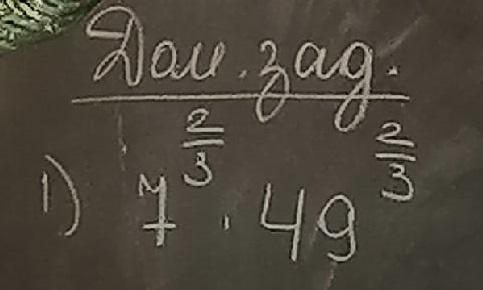 Дом. зад.
1) 7^{2/3} · 49^{2/3}